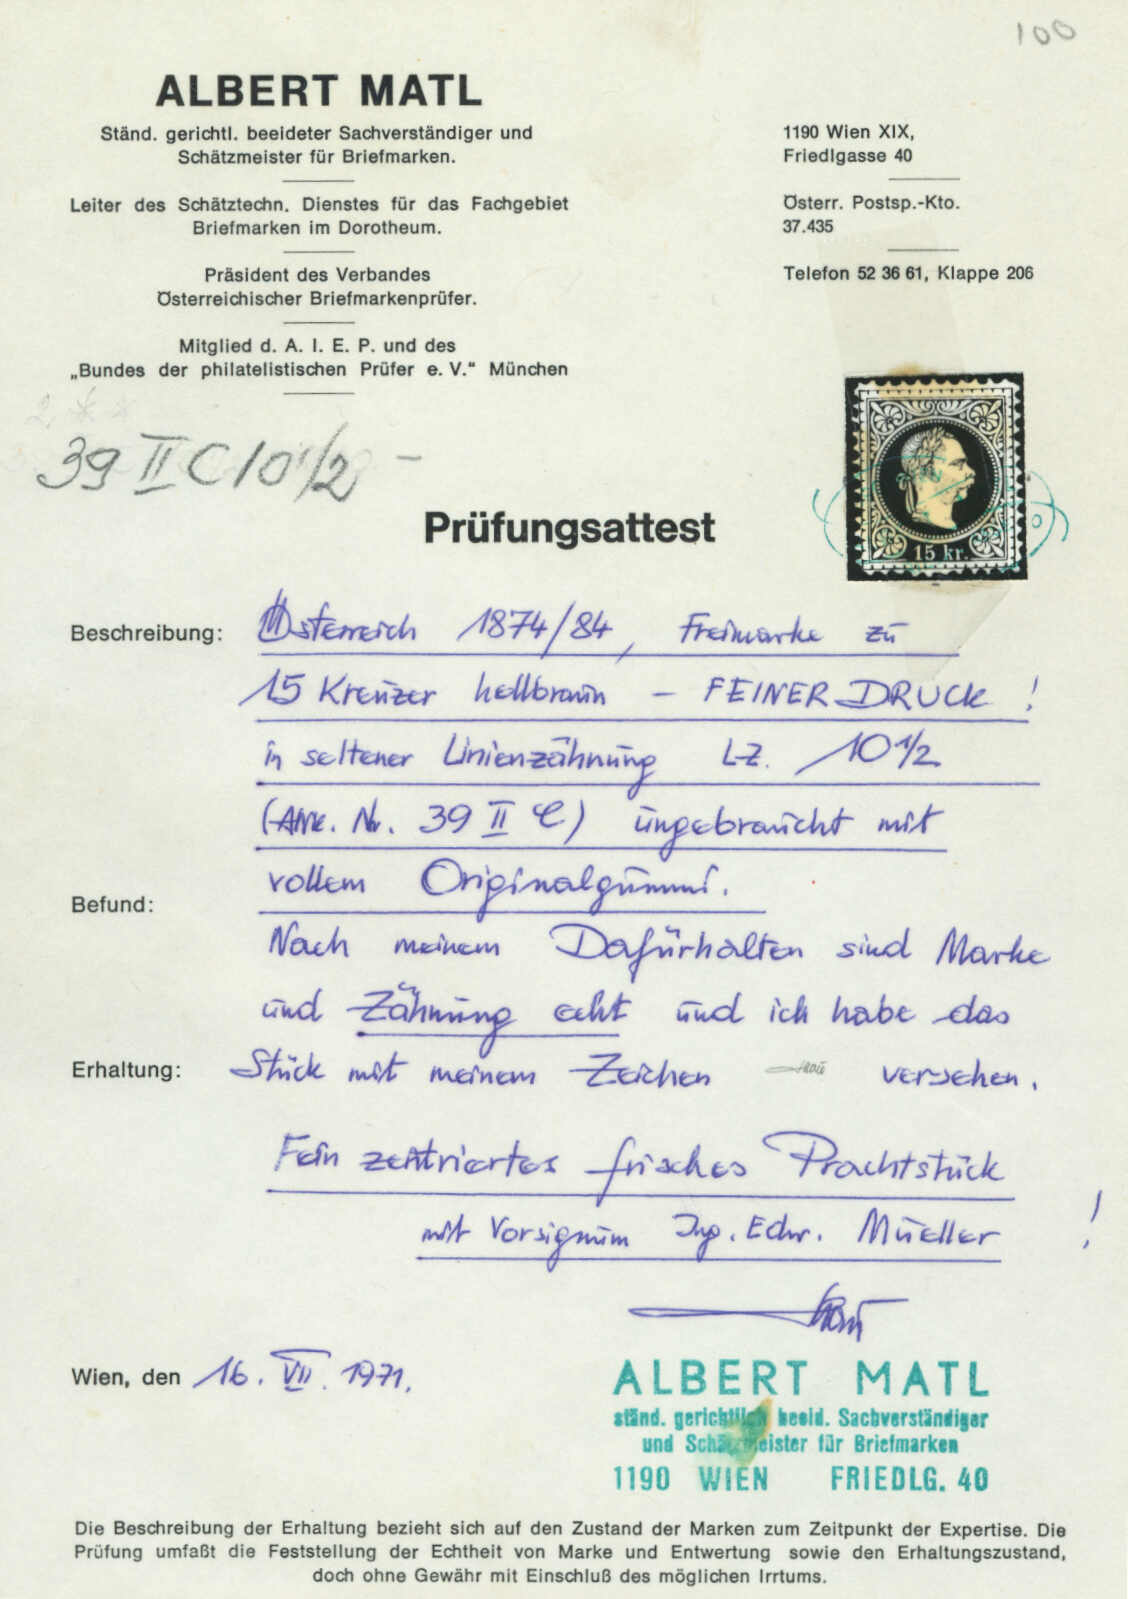 100
ALBERT MATL
Ständ. gerichtl. beeideter Sachverständiger und
Schätzmeister für Briefmarken.
Leiter des Schätztechn. Dienstes für das Fachgebiet
Briefmarken im Dorotheum.
Präsident des Verbandes
Österreichischer Briefmarkenprüfer.
Mitglied d. A. I. E. P. und des
„Bundes der philatelistischen Prüfer e. V.“ München
1190 Wien XIX,
Friedlgasse 40
Österr. Postsp.-Kto.
37.435
Telefon 52 36 61, Klappe 206
39 II C 10 1/2 –
15 kr.
Prüfungsattest
Beschreibung: Österreich 1874/84, Freimarke zu
15 Kreuzer hellbraun – FEINER DRUCK!
in seltener Linienzähnung LZ. 10 1/2
(ANK. Nr. 39 II C) ungebraucht mit
vollem Originalgummi.
Befund:
Nach meinem Dafürhalten sind Marke
und Zähnung echt und ich habe das
Erhaltung: Stück mit meinem Zeichen versehen.
Fein zentriertes frisches Prachtstück
mit Vorsignum Ing. Edw. Mueller !
Wien, den 16. VII. 1971.
ALBERT MATL
ständ. gerichtlich beeid. Sachverständiger
und Schätzmeister für Briefmarken
1190 WIEN FRIEDLG. 40
Die Beschreibung der Erhaltung bezieht sich auf den Zustand der Marken zum Zeitpunkt der Expertise. Die
Prüfung umfaßt die Feststellung der Echtheit von Marke und Entwertung sowie den Erhaltungszustand,
doch ohne Gewähr mit Einschluß des möglichen Irrtums.